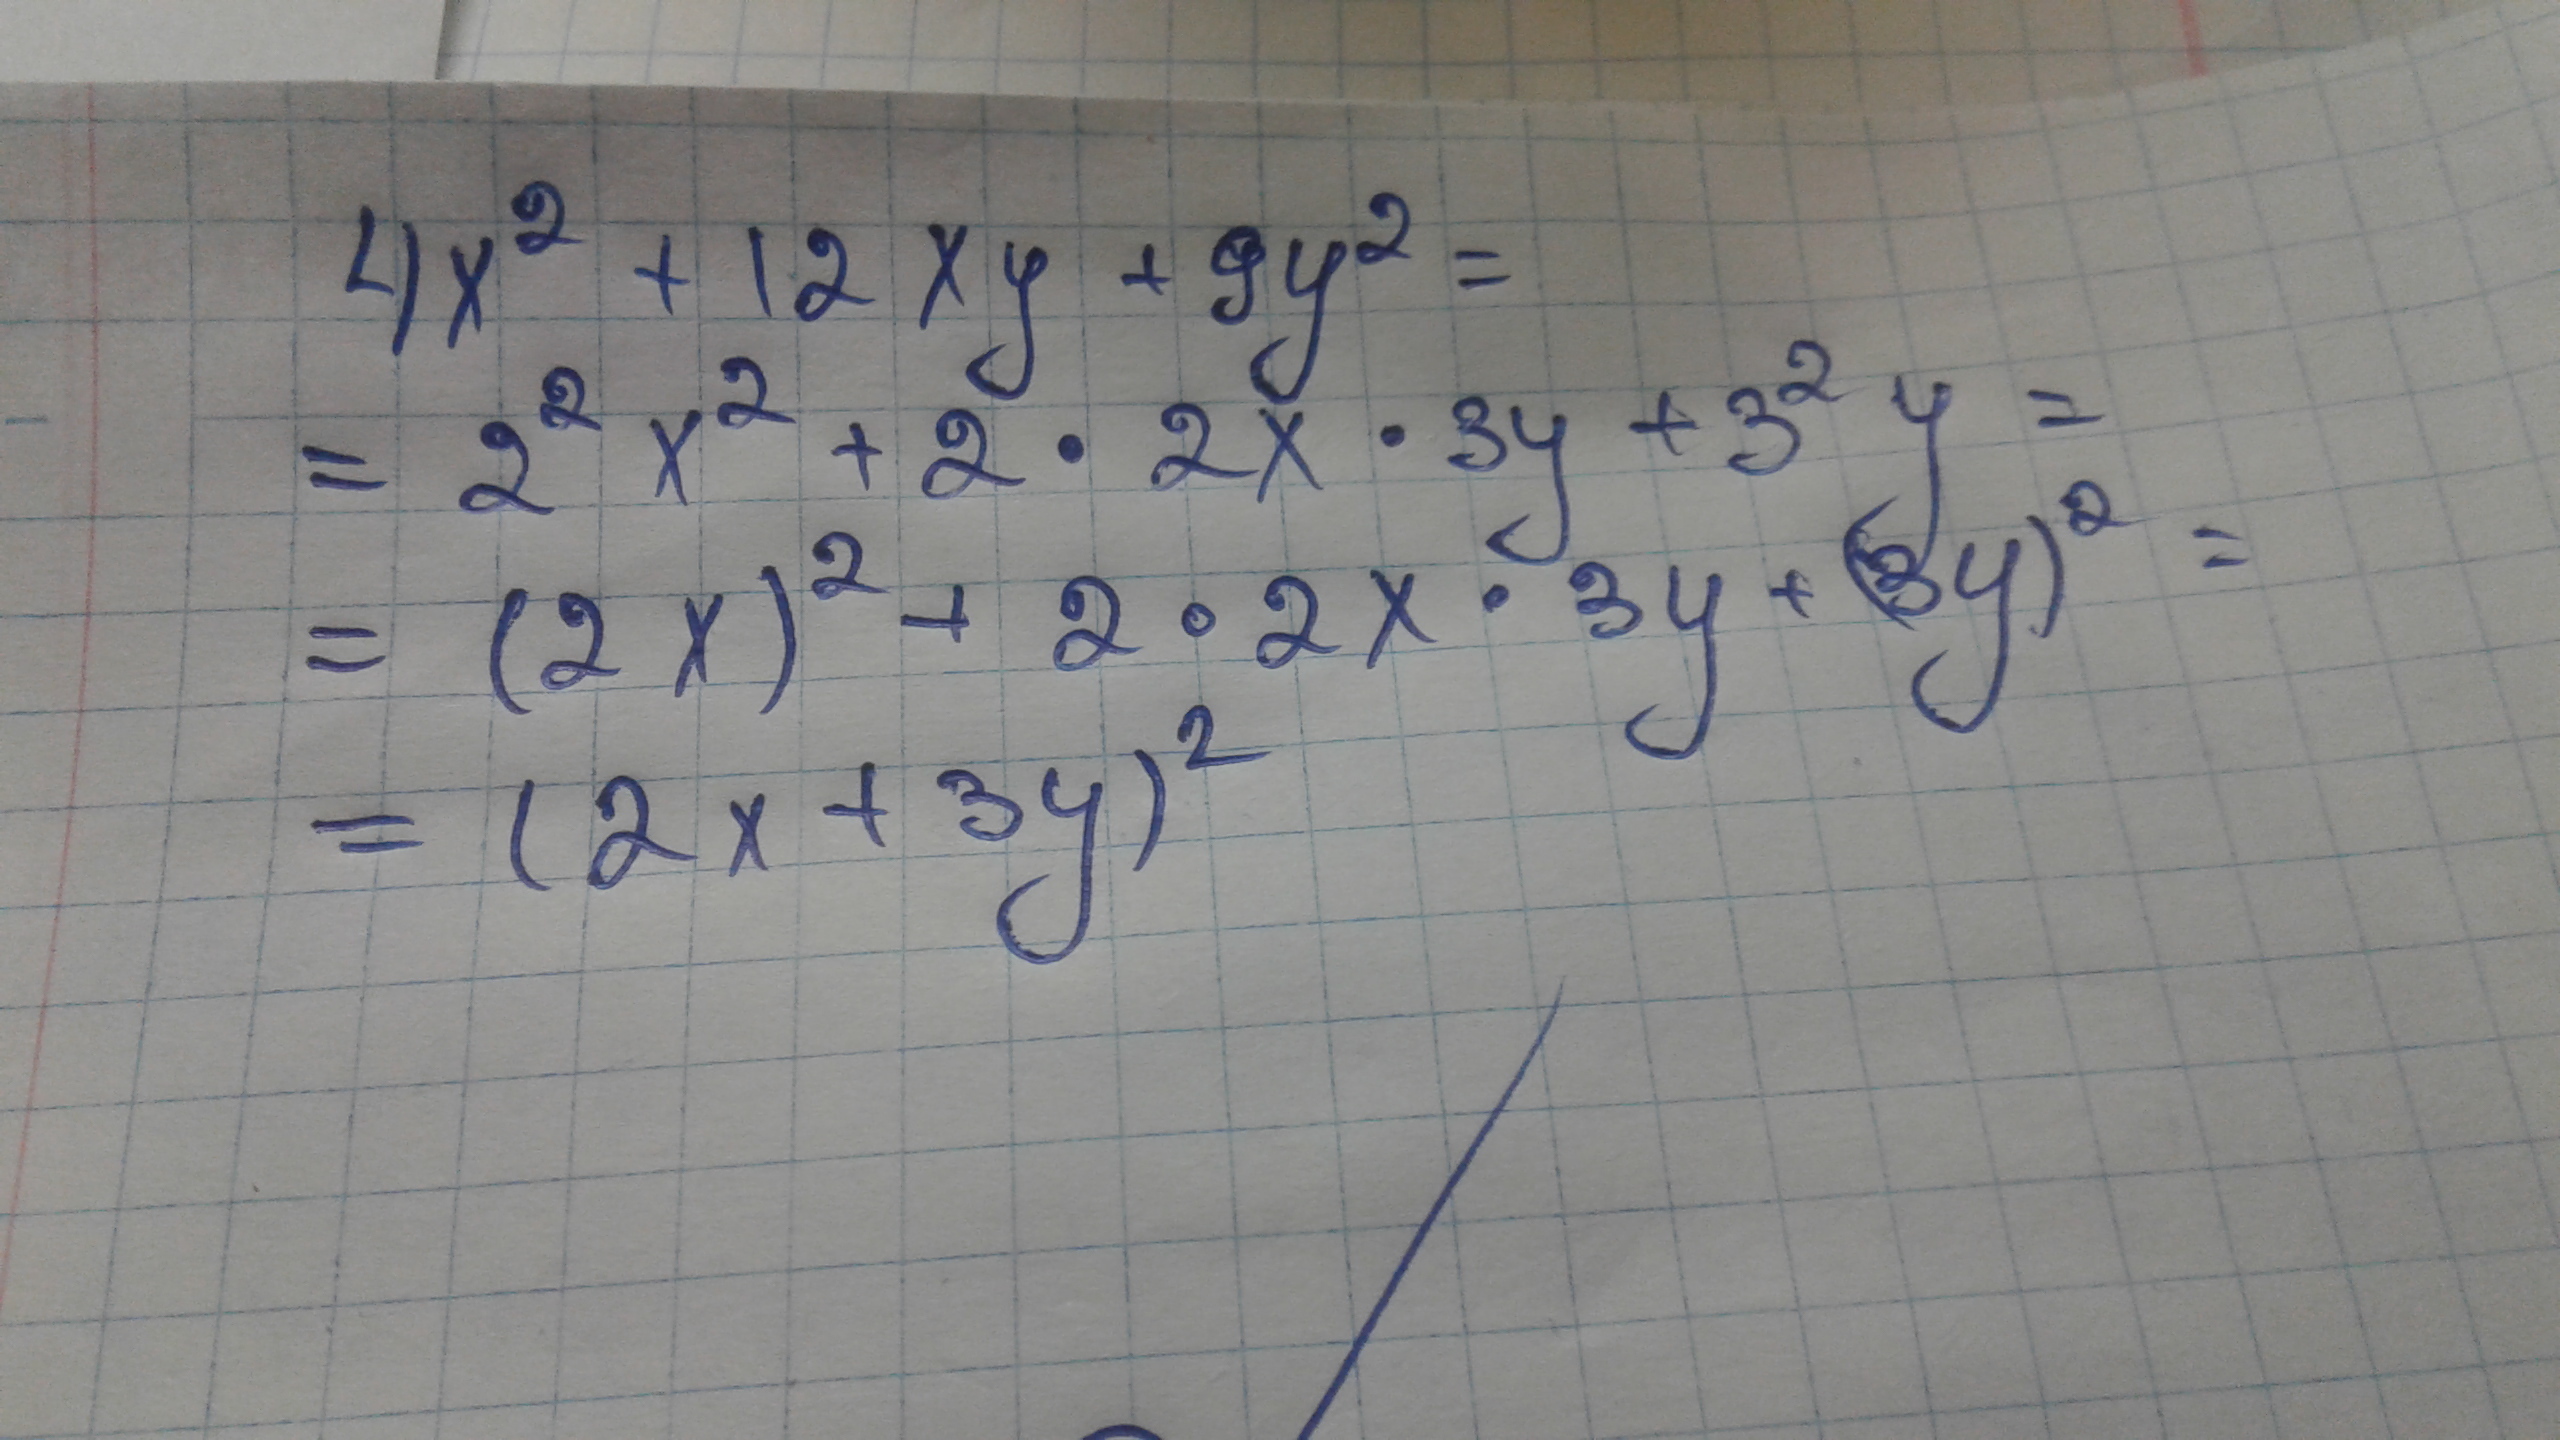 4x² + 12xy + 9y² =
= 2² x² + 2 · 2x · 3y + 3² y =
= (2x)² + 2 · 2x · 3y + (3y)² =
= (2x + 3y)²